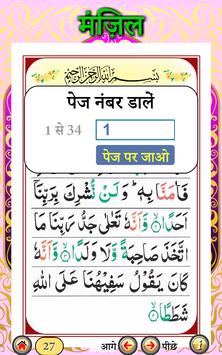 मंज़िल
بِسْمِ اللهِ الرَّحْمٰنِ الرَّحِيْمِ
पेज नंबर डालें
1 से 34
1
पेज पर जाओ
فَاٰمَنَّا بِهٖ ؕ وَلَنْ نُّشْرِكَ بِرَبِّنَاۤ
اَحَدًا ۙ وَّاَنَّهٗ تَعٰلٰى جَدُّ رَبِّنَا مَا
اتَّخَذَ صَاحِبَةً وَّلَا وَلَدًا ۙ وَّاَنَّهٗ
كَانَ يَقُوْلُ سَفِيْهُنَا عَلَى اللهِ
شَطَطًا ۙ
27
आगे
पीछे